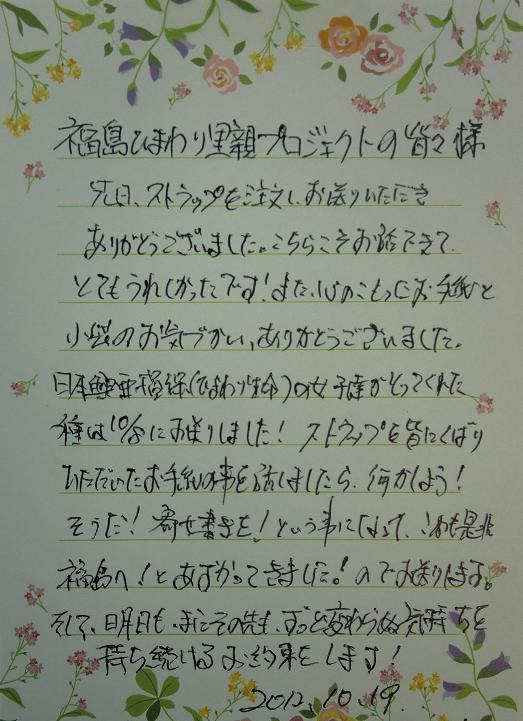 福島ひまわり里親プロジェクトの皆々様
先日、ストラップを注文し、お送りいただき
ありがとうございました。こちらこそお話できて、
とてもうれしかったです!また、心のこもったお手紙と
お気づかい、ありがとうございました。
日本興亜 (ひまわり生命)の女子達がとってくれた
種は10/ にお送りしました! ストラップを皆にくばり
いただいたお手紙の事を話しましたら、何かしよう!
そうだ!寄せ書きを!という事になって、これも是非
福島へ!とあずかってきました!のでお送りします。
そして、明日も、またその先も、ずっと変わらぬ気持ちを
持ち続けるお約束をします!
2012.10.19.